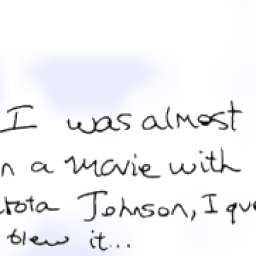 I was almost
n a movie with
kota Johnson, I gue
blew it...